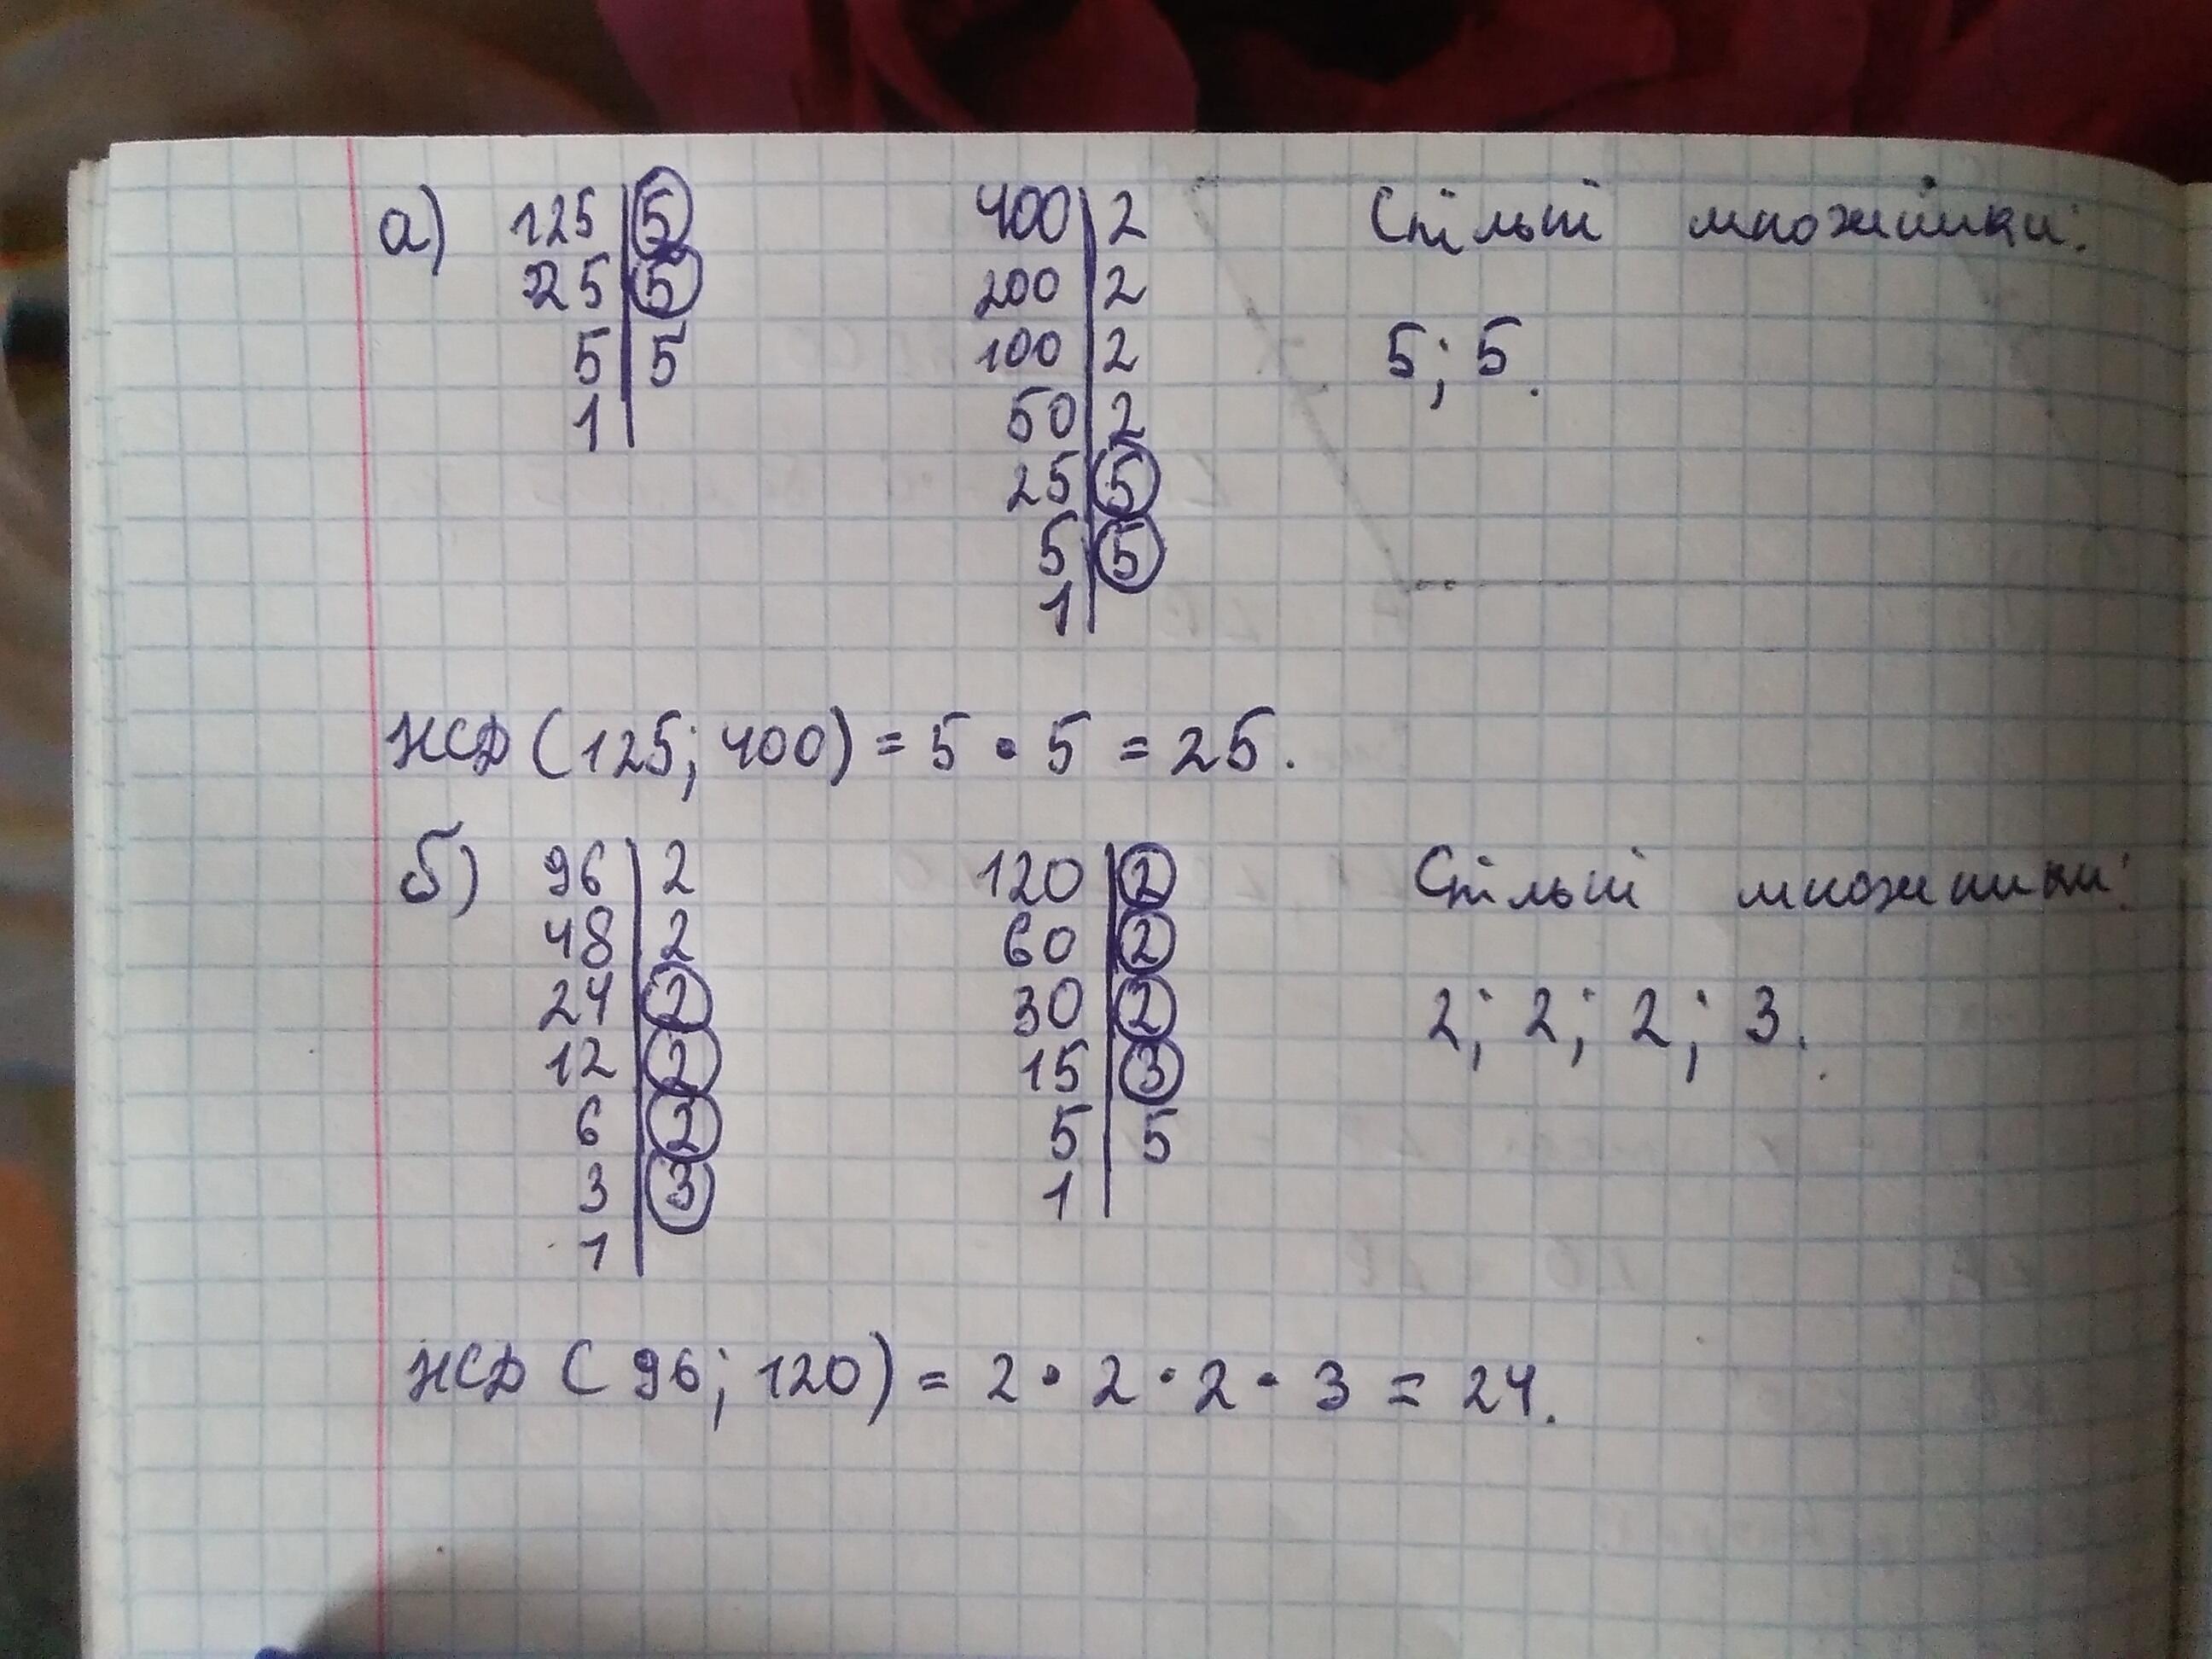 а) 125 | 5 400 | 2 Спільні множники:
25 | 5 200 | 2
5 | 5 100 | 2 5; 5.
1 | 50 | 2
25 | 5
5 | 5
1 |
НСД (125; 400) = 5 • 5 = 25.
б) 96 | 2 120 | 2 Спільні множники:
48 | 2 60 | 2
24 | 2 30 | 2 2; 2; 2; 3.
12 | 2 15 | 3
6 | 2 5 | 5
3 | 3 1 |
1 |
НСД (96; 120) = 2 • 2 • 2 • 3 = 24.